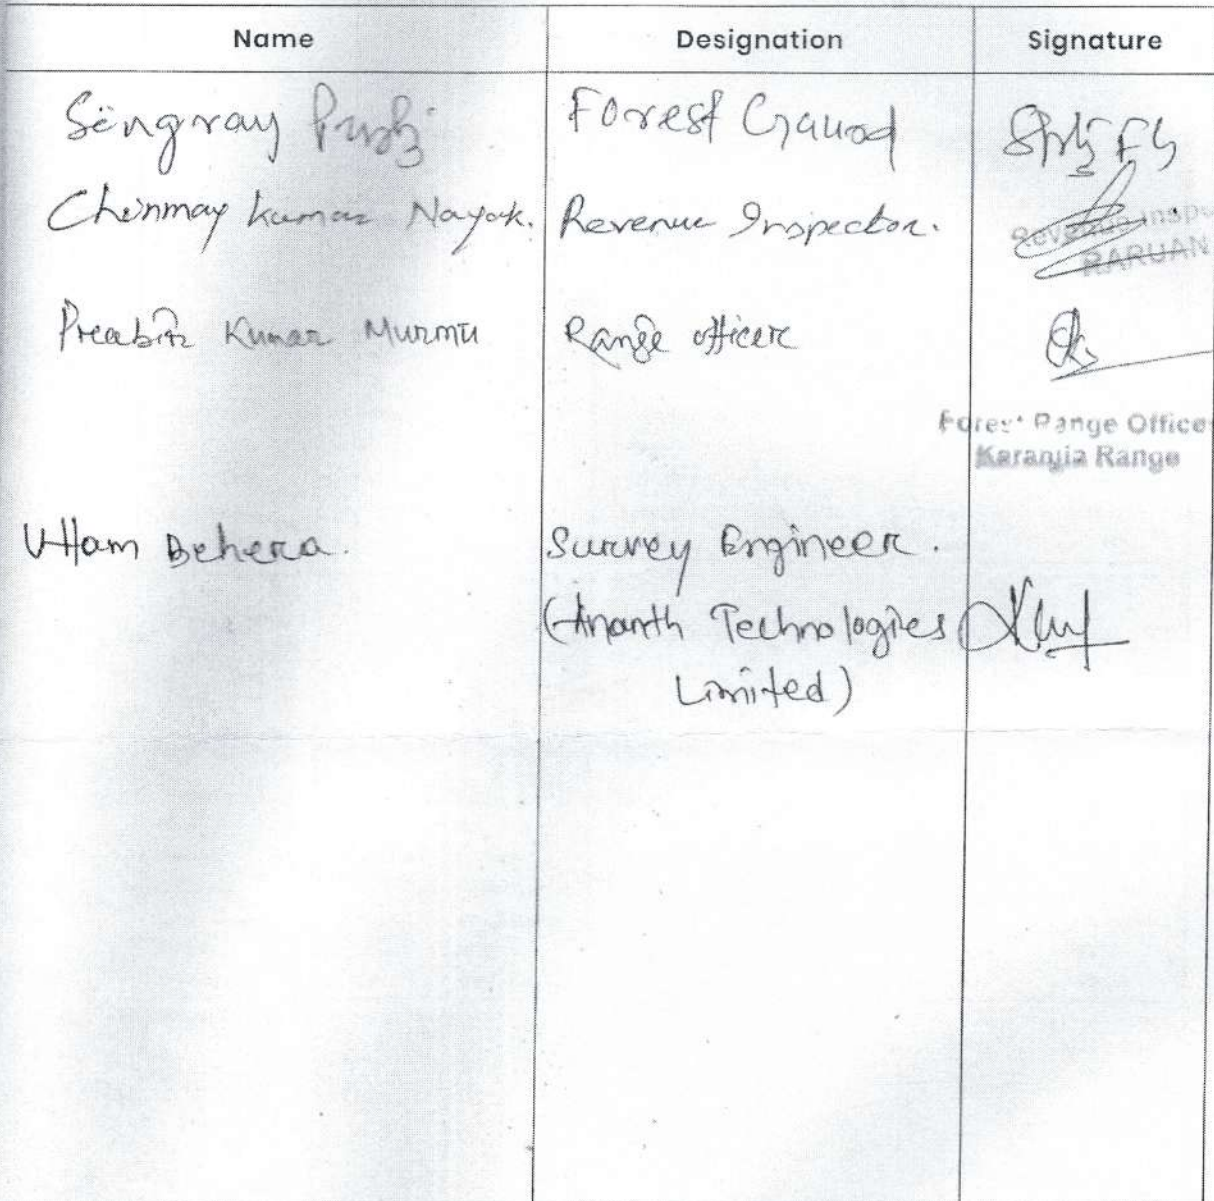 Name Designation Signature
Sengray Forest Gauod
Chinmay Kumar Nayak. Revenue Inspector.
Revenue Inspe
RARUAN
Preabir Kumar Murmu Range officer
Forest Range Officer
Karanjia Range
Uttam Behera. Survey Engineer.
(Ananth Technologies
Limited)